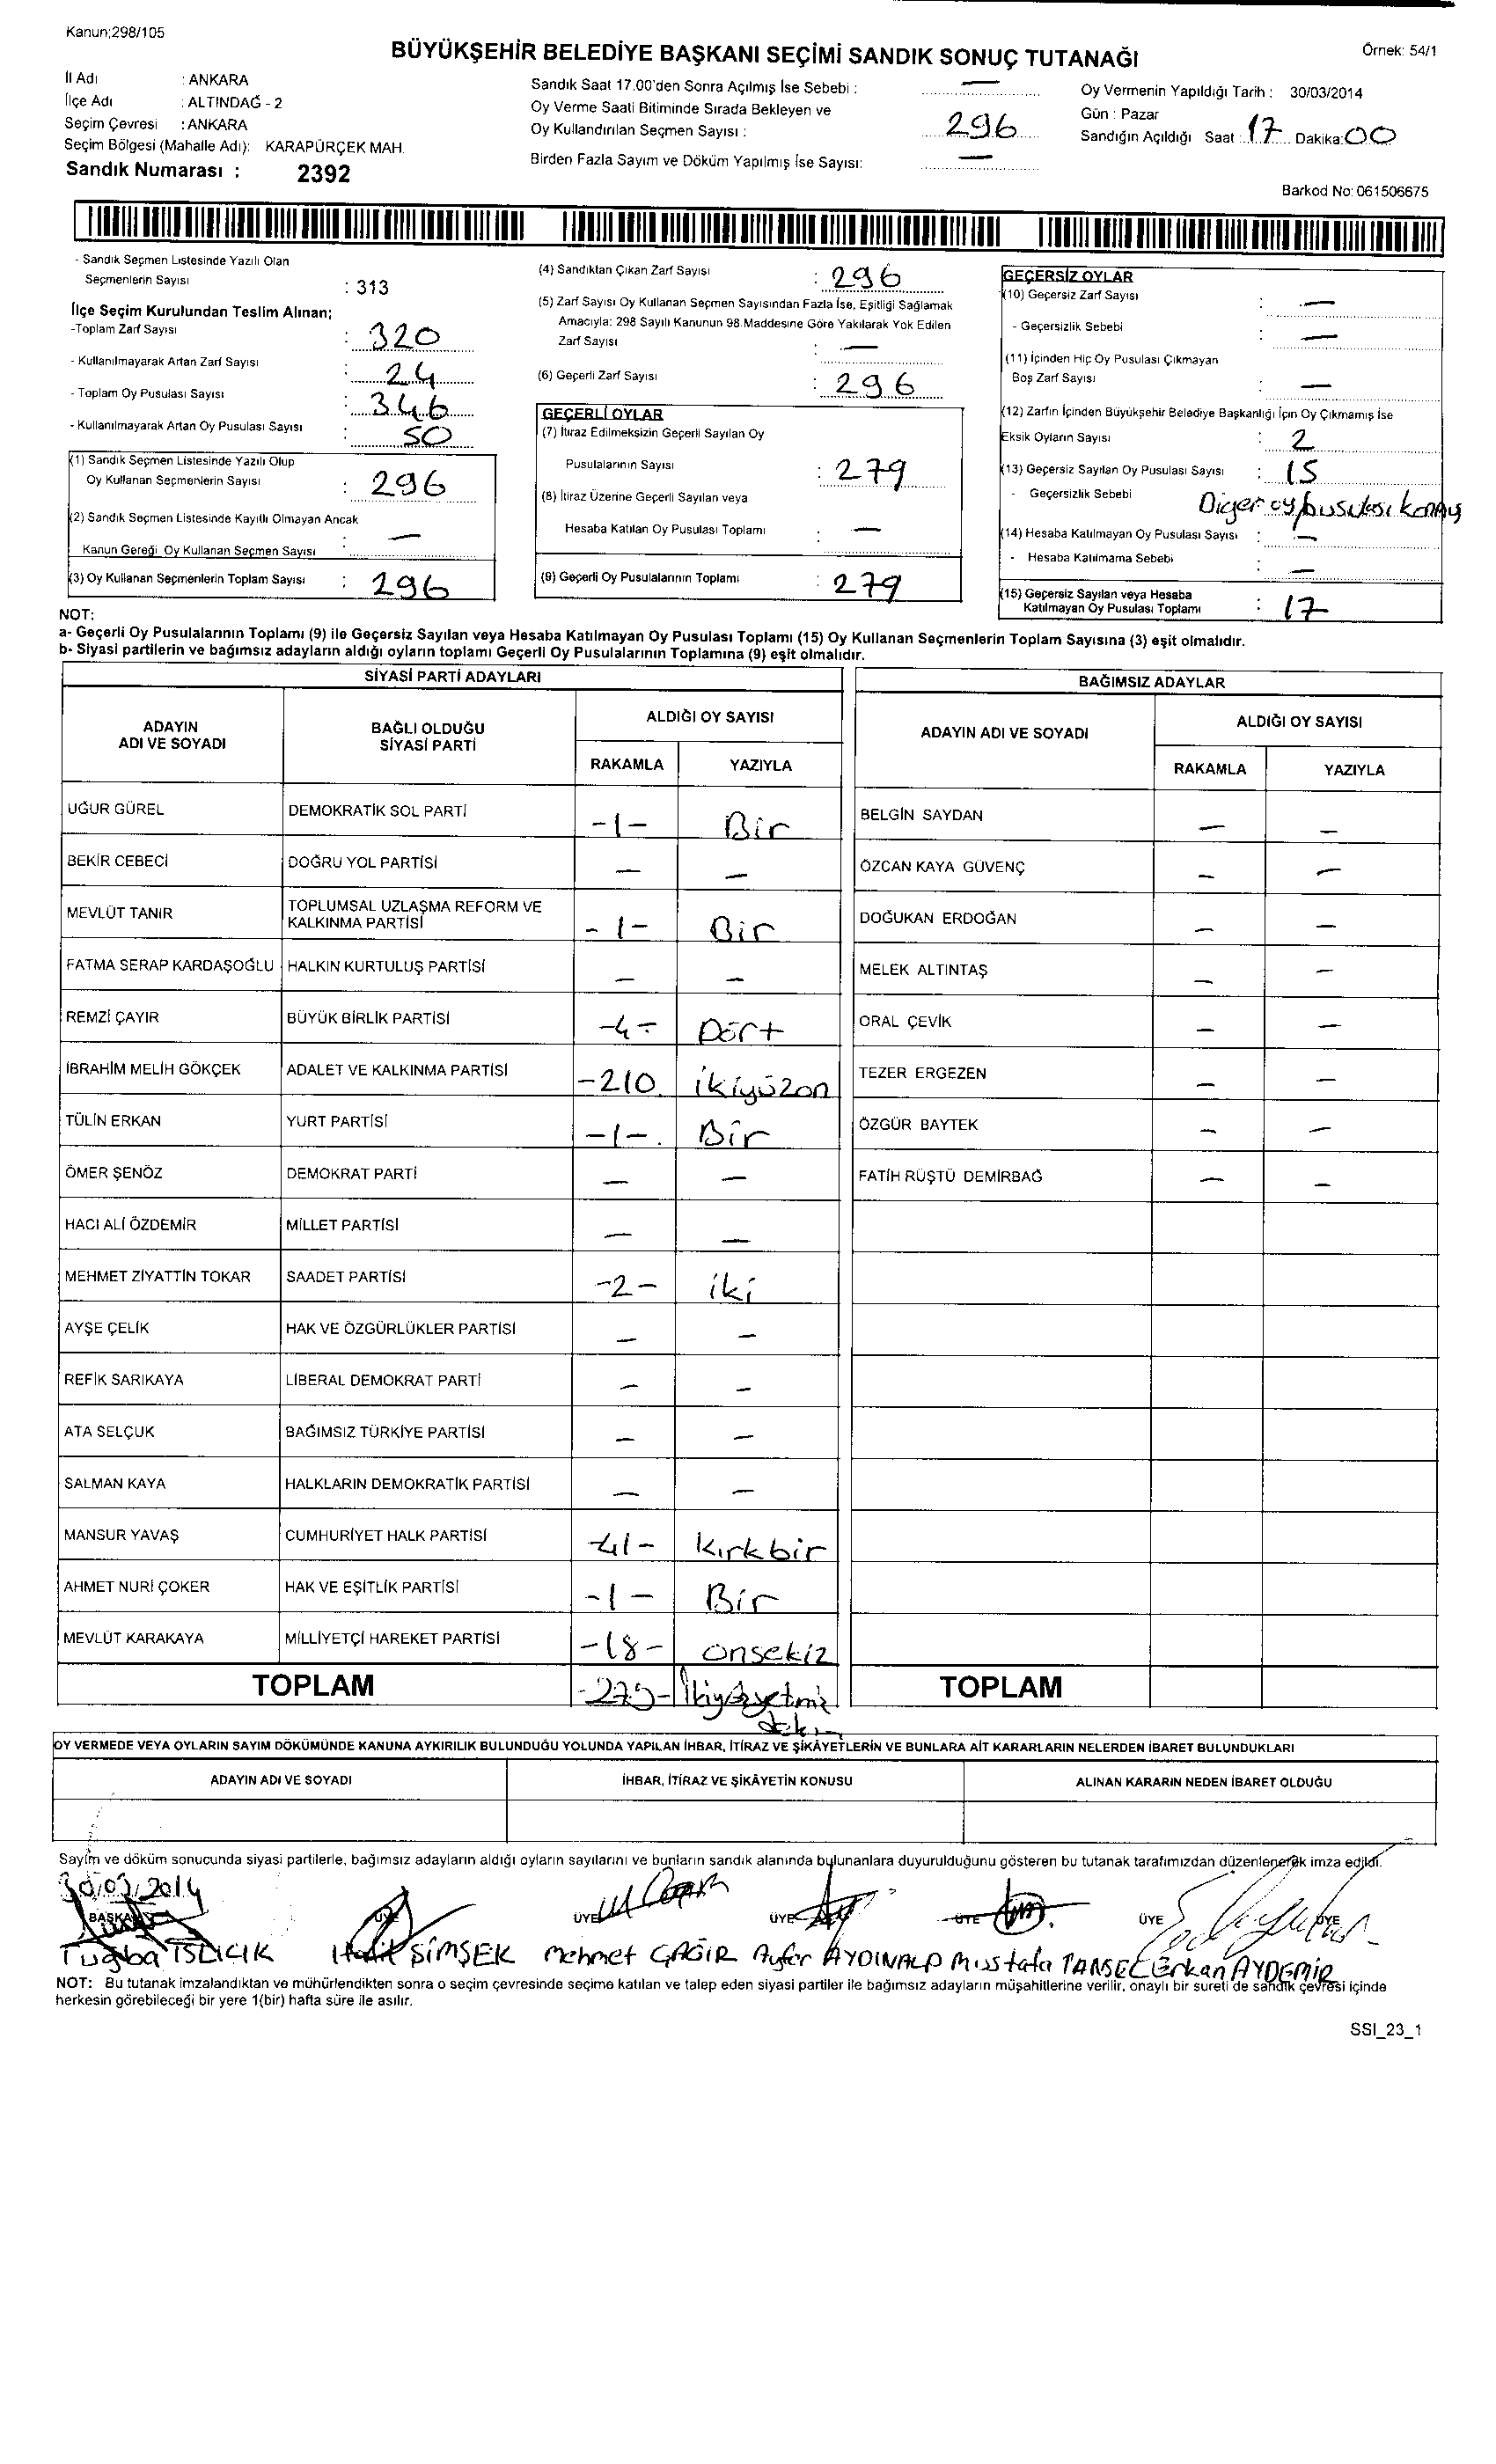 Kanun;298/105
BÜYÜKŞEHİR BELEDİYE BAŞKANI SEÇİMİ SANDIK SONUÇ TUTANAĞI
Örnek: 54/1
İl Adı : ANKARA
İlçe Adı : ALTINDAĞ - 2
Seçim Çevresi : ANKARA
Seçim Bölgesi (Mahalle Adı): KARAPÜRÇEK MAH.
Sandık Numarası : 2392
Sandık Saat 17.00'den Sonra Açılmış İse Sebebi : —
Oy Verme Saati Bitiminde Sırada Bekleyen ve
Oy Kullandırılan Seçmen Sayısı : 296
Birden Fazla Sayım ve Döküm Yapılmış İse Sayısı: —
Oy Vermenin Yapıldığı Tarih : 30/03/2014
Gün : Pazar
Sandığın Açıldığı Saat : 17 Dakika: 00
Barkod No: 061506675
- Sandık Seçmen Listesinde Yazılı Olan
Seçmenlerin Sayısı : 313
İlçe Seçim Kurulundan Teslim Alınan;
-Toplam Zarf Sayısı : 320
- Kullanılmayarak Artan Zarf Sayısı : 24
- Toplam Oy Pusulası Sayısı : 346
- Kullanılmayarak Artan Oy Pusulası Sayısı : 50
(1) Sandık Seçmen Listesinde Yazılı Olup
Oy Kullanan Seçmenlerin Sayısı : 296
(2) Sandık Seçmen Listesinde Kayıtlı Olmayan Ancak
Kanun Gereği Oy Kullanan Seçmen Sayısı : —
(3) Oy Kullanan Seçmenlerin Toplam Sayısı : 296
(4) Sandıktan Çıkan Zarf Sayısı : 296
(5) Zarf Sayısı Oy Kullanan Seçmen Sayısından Fazla İse, Eşitliği Sağlamak
Amacıyla: 298 Sayılı Kanunun 98.Maddesine Göre Yakılarak Yok Edilen
Zarf Sayısı : —
(6) Geçerli Zarf Sayısı : 296
GEÇERLİ OYLAR
(7) İtiraz Edilmeksizin Geçerli Sayılan Oy
Pusulalarının Sayısı : 279
(8) İtiraz Üzerine Geçerli Sayılan veya
Hesaba Katılan Oy Pusulası Toplamı : —
(9) Geçerli Oy Pusulalarının Toplamı : 279
GEÇERSİZ OYLAR
(10) Geçersiz Zarf Sayısı : —
- Geçersizlik Sebebi : —
(11) İçinden Hiç Oy Pusulası Çıkmayan
Boş Zarf Sayısı : —
(12) Zarfın İçinden Büyükşehir Belediye Başkanlığı İçin Oy Çıkmamış İse
Eksik Oyların Sayısı : 2
(13) Geçersiz Sayılan Oy Pusulası Sayısı : 15
- Geçersizlik Sebebi Diğer oy pusulası
(14) Hesaba Katılmayan Oy Pusulası Sayısı : —
- Hesaba Katılmama Sebebi : —
(15) Geçersiz Sayılan veya Hesaba
Katılmayan Oy Pusulası Toplamı : 17
NOT:
a- Geçerli Oy Pusulalarının Toplamı (9) ile Geçersiz Sayılan veya Hesaba Katılmayan Oy Pusulası Toplamı (15) Oy Kullanan Seçmenlerin Toplam Sayısına (3) eşit olmalıdır.
b- Siyasi partilerin ve bağımsız adayların aldığı oyların toplamı Geçerli Oy Pusulalarının Toplamına (9) eşit olmalıdır.
SİYASİ PARTİ ADAYLARI
ADAYIN ADI VE SOYADI BAĞLI OLDUĞU SİYASİ PARTİ ALDIĞI OY SAYISI
RAKAMLA YAZIYLA
UĞUR GÜREL DEMOKRATİK SOL PARTİ -1- Bir
BEKİR CEBECİ DOĞRU YOL PARTİSİ — —
MEVLÜT TANIR TOPLUMSAL UZLAŞMA REFORM VE KALKINMA PARTİSİ -1- Bir
FATMA SERAP KARDAŞOĞLU HALKIN KURTULUŞ PARTİSİ — —
REMZİ ÇAYIR BÜYÜK BİRLİK PARTİSİ -4- Dört
İBRAHİM MELİH GÖKÇEK ADALET VE KALKINMA PARTİSİ -210 ikiyüzon
TÜLİN ERKAN YURT PARTİSİ -1-. Bir
ÖMER ŞENÖZ DEMOKRAT PARTİ — —
HACI ALİ ÖZDEMİR MİLLET PARTİSİ — —
MEHMET ZİYATTİN TOKAR SAADET PARTİSİ -2- iki
AYŞE ÇELİK HAK VE ÖZGÜRLÜKLER PARTİSİ — —
REFİK SARIKAYA LİBERAL DEMOKRAT PARTİ — —
ATA SELÇUK BAĞIMSIZ TÜRKİYE PARTİSİ — —
SALMAN KAYA HALKLARIN DEMOKRATİK PARTİSİ — —
MANSUR YAVAŞ CUMHURİYET HALK PARTİSİ -41- Kırkbir
AHMET NURİ ÇOKER HAK VE EŞİTLİK PARTİSİ -1- Bir
MEVLÜT KARAKAYA MİLLİYETÇİ HAREKET PARTİSİ -18- onsekiz
TOPLAM -279-
BAĞIMSIZ ADAYLAR
ADAYIN ADI VE SOYADI ALDIĞI OY SAYISI
RAKAMLA YAZIYLA
BELGİN SAYDAN — —
ÖZCAN KAYA GÜVENÇ — —
DOĞUKAN ERDOĞAN — —
MELEK ALTINTAŞ — —
ORAL ÇEVİK — —
TEZER ERGEZEN — —
ÖZGÜR BAYTEK — —
FATİH RÜŞTÜ DEMİRBAĞ — —
TOPLAM
OY VERMEDE VEYA OYLARIN SAYIM DÖKÜMÜNDE KANUNA AYKIRILIK BULUNDUĞU YOLUNDA YAPILAN İHBAR, İTİRAZ VE ŞİKÂYETLERİN VE BUNLARA AİT KARARLARIN NELERDEN İBARET BULUNDUKLARI
ADAYIN ADI VE SOYADI İHBAR, İTİRAZ VE ŞİKÂYETİN KONUSU ALINAN KARARIN NEDEN İBARET OLDUĞU
Sayım ve döküm sonucunda siyasi partilerle, bağımsız adayların aldığı oyların sayılarını ve bunların sandık alanında bulunanlara duyurulduğunu gösteren bu tutanak tarafımızdan düzenlenerek imza edildi.
30/03/2014
BAŞKAN ÜYE ÜYE ÜYE ÜYE ÜYE ÜYE
Tuğba Halit ŞİMŞEK Mehmet ÇAĞIR Ayfer AYDINALP Mustafa TANSEL Erkan AYDEMİR
NOT: Bu tutanak imzalandıktan ve mühürlendikten sonra o seçim çevresinde seçime katılan ve talep eden siyasi partiler ile bağımsız adayların müşahitlerine verilir, onaylı bir sureti de sandık çevresi içinde
herkesin görebileceği bir yere 1(bir) hafta süre ile asılır.
SSI_23_1